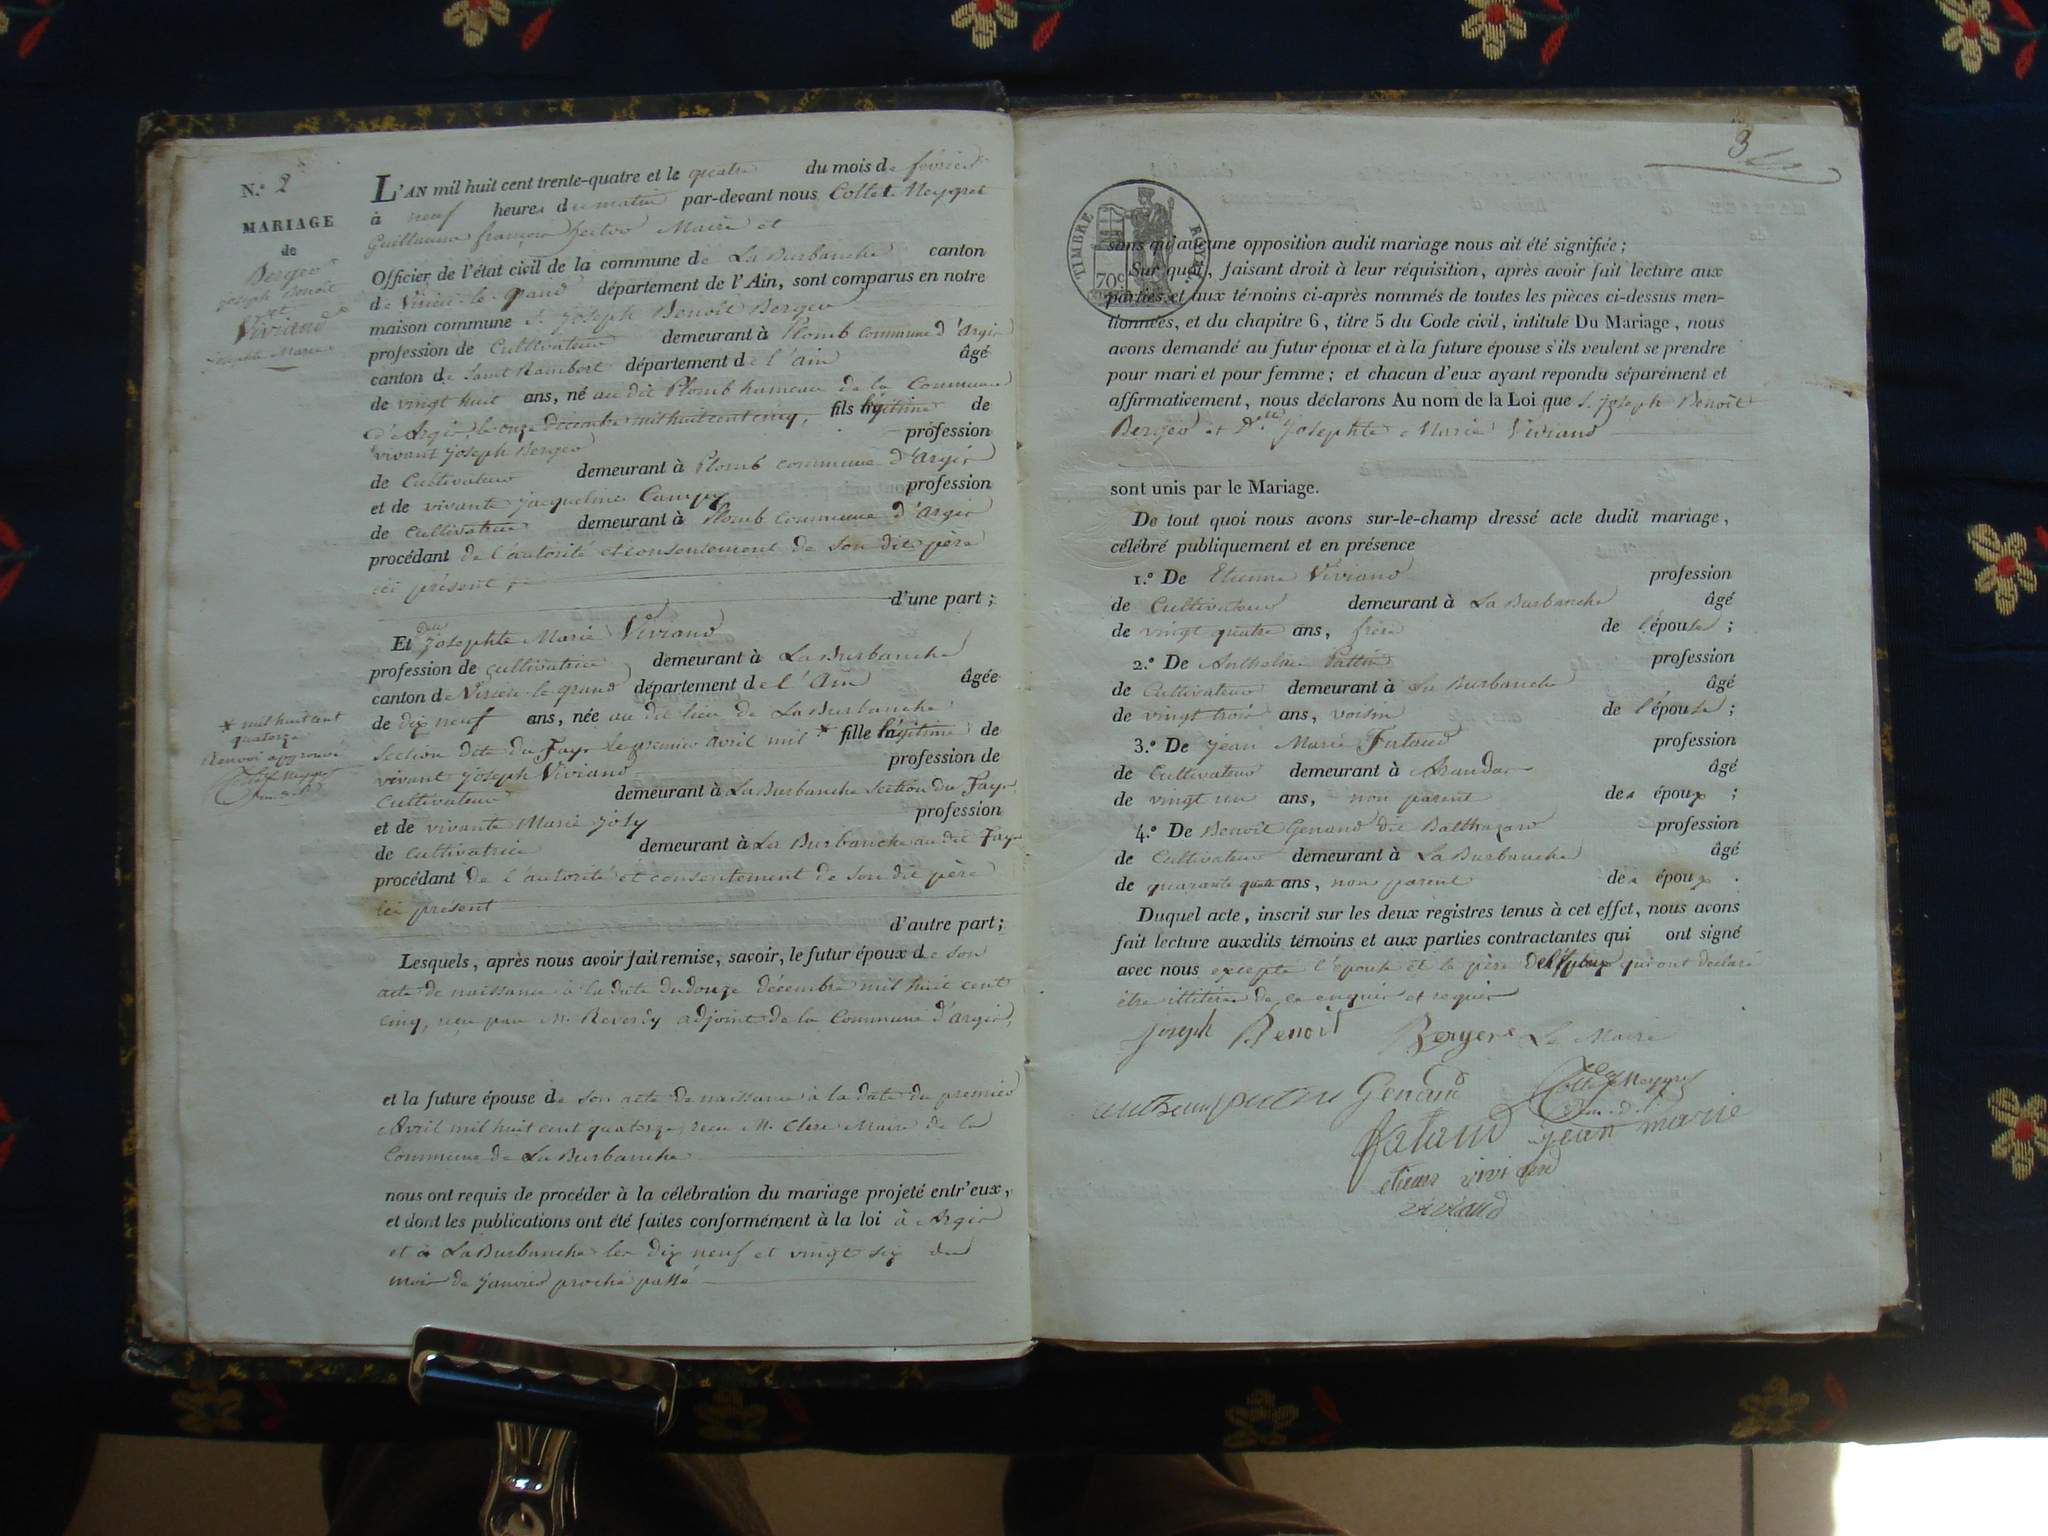 N.º 2
MARIAGE
de
Berger
Joseph Benoit
et
Viviand
Josephte Marie
L'AN mil huit cent trente-quatre et le quatre du mois de février
à neuf heures du matin par-devant nous Collet Meygret
Guillaume françois hector Maire et
Officier de l'état civil de la commune de La Burbanche canton
de Virieu-le-grand département de l'Ain, sont comparus en notre
maison commune S. Joseph Benoît Berger
profession de Cultivateur demeurant à Plomb commune d'Argis
canton de Saint Rambert département de l'ain âgé
de vingt huit ans, né au dit Plomb hameau de la Commune
d'Argis, le onze décembre mil huit cent cinq, fils légitime de
vivant Joseph Berger profession
de Cultivateur demeurant à Plomb commune d'Argis
et de vivante Jacqueline profession
de Cultivatrice demeurant à Plomb commune d'Argis
procédant de l'autorité et consentement de son dit père
ici présent,
d'une part ;
Et Delle Josephte Marie Viviand
profession de cultivatrice demeurant à La Burbanche
canton de Virieu-le-grand département de l'Ain âgée
de dix neuf ans, née au dit lieu de La Burbanche
section dite du Fays le premier avril mil * fille légitime de
* mil huit cent
quatorze
Renvoi approuvé
Collet Meygret
vivant Joseph Viviand profession de
Cultivateur demeurant à La Burbanche Section du Fays
et de vivante Marie Joly profession
de cultivatrice demeurant à La Burbanche au dit Fays
procédant de l'autorité et consentement de son dit père
ici présent
d'autre part ;
Lesquels, après nous avoir fait remise, savoir, le futur époux de son
acte de naissance à la date du douze décembre mil huit cent
cinq, reçu par M. Reverdy adjoint de la Commune d'argis,
et la future épouse de son acte de naissance à la date du premier
Avril mil huit cent quatorze, reçu M. Clerc Maire de la
Commune de La Burbanche
nous ont requis de procéder à la célébration du mariage projeté entr'eux,
et dont les publications ont été faites conformément à la loi à Argis
et à La Burbanche les dix neuf et vingt six du
mois de janvier proche passé
3
TIMBRE ROYAL
70c
sans qu'aucune opposition audit mariage nous ait été signifiée ;
Sur quoi, faisant droit à leur réquisition, après avoir fait lecture aux
parties et aux témoins ci-après nommés de toutes les pièces ci-dessus men-
tionnées, et du chapitre 6, titre 5 du Code civil, intitulé Du Mariage, nous
avons demandé au futur époux et à la future épouse s'ils veulent se prendre
pour mari et pour femme ; et chacun d'eux ayant repondu séparément et
affirmativement, nous déclarons Au nom de la Loi que S. Joseph Benoît
Berger et D.lle Josephte Marie Viviand
sont unis par le Mariage.
De tout quoi nous avons sur-le-champ dressé acte dudit mariage,
célébré publiquement et en présence
1.º De Etienne Viviand profession
de Cultivateur demeurant à La Burbanche âgé
de vingt quatre ans, frère de l'épouse ;
2.º De Anthelme Pattin profession
de Cultivateur demeurant à La Burbanche âgé
de vingt trois ans, voisin de l'épouse ;
3.º De Jean Marie profession
de Cultivateur demeurant à Arandas âgé
de vingt un ans, non parent des époux ;
4.º De Benoît Genand dit Balthazard profession
de Cultivateur demeurant à La Burbanche âgé
de quarante quatre ans, non parent des époux .
Duquel acte, inscrit sur les deux registres tenus à cet effet, nous avons
fait lecture auxdits témoins et aux parties contractantes qui ont signé
avec nous excepté l'épouse et le père de l'époux qui ont déclaré
être illitérés de ce enquis et requis
Joseph Benoit Berger Le Maire
Genand Collet Meygret
jean marie
viviand
viviand